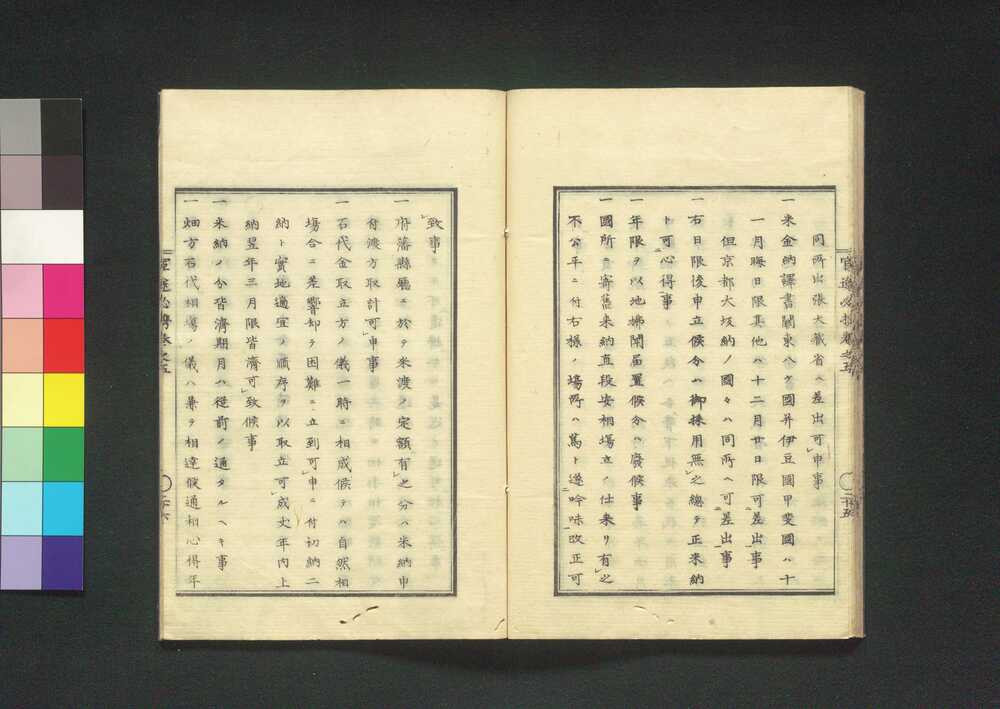 同所出張大藏省ヘ差出可申事
一米金納譯書關東八ケ國幷伊豆國甲斐國ハ十
一月晦日限其他ハ十二月廿日限可差出事
但京都大坂納ノ國々ハ同所ヘ可差出事
一右日限後申立候分ハ御採用無之總テ正米納
ト可心得事
一年限ヲ以地拂聞屆置候分ハ廢候事
一國所ニ寄舊來納直段安相場立ノ仕來リ有之
不公平ニ付右樣ノ場所ハ篤ト遂吟味改正可
致事
一府藩縣廳ニ於テ米渡ノ定額有之分ハ米納申
付渡方取計可申事
一石代金取立方ノ儀一時ニ相成候テハ自然相
場合ニ差響却テ困難ニ立到可申ニ付初納二
納ト實地適宜ノ順序ヲ以取立可成丈年內上
納翌年三月限皆濟可致候事
一米納ノ分皆濟期月ハ從前ノ通タルヘキ事
一畑方石代相場ノ儀ハ兼テ相達候通相心得年
二十五
二十六